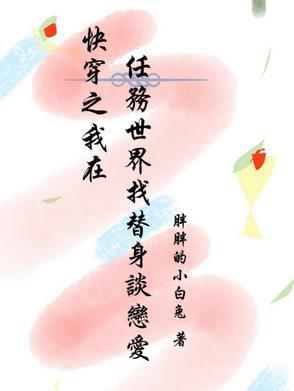 快穿之我在
任務世界找替身談戀愛
胖胖的小白兔 著